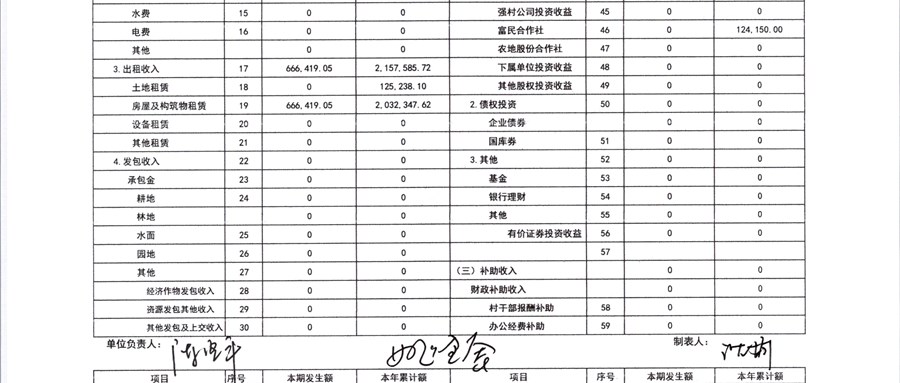 水费 15 0 0 强村公司投资收益 45 0 0
电费 16 0 0 富民合作社 46 0 124,150.00
其他 0 0 农地股份合作社 47 0 0
3.出租收入 17 666,419.05 2,157,585.72 下属单位投资收益 48 0 0
土地租赁 18 0 125,238.10 其他股权投资收益 49 0 0
房屋及构筑物租赁 19 666,419.05 2,032,347.62 2.债权投资 50 0 0
设备租赁 20 0 0 企业债券 0 0
其他租赁 21 0 0 国库券 51 0 0
4.发包收入 22 0 0 3.其他 52 0 0
承包金 23 0 0 基金 53 0 0
耕地 24 0 0 银行理财 54 0 0
林地 0 0 其他 55 0 0
水面 25 0 0 有价证券投资收益 56 0 0
园地 26 0 0 57
其他 27 0 0 （三）补助收入 0 0
经济作物发包收入 28 0 0 财政补助收入 0 0
资源发包其他收入 29 0 0 村干部报酬补助 58 0 0
其他发包及上交收入 30 0 0 办公经费补助 59 0 0
单位负责人： 制表人：
项目 序号 本期发生额 本年累计额 项目 序号 本期发生额 本年累计额